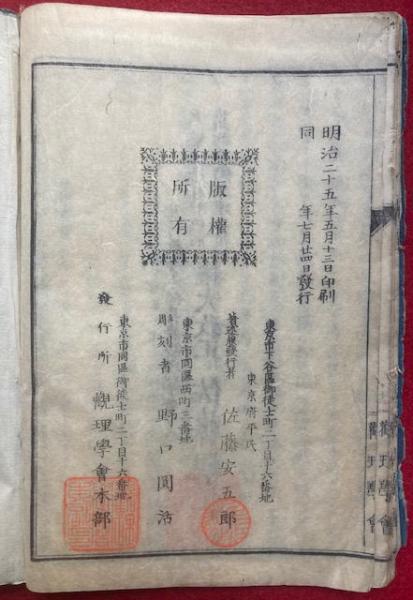 明治二十五年五月十三日印刷
同年七月廿四日發行
版權
所有
東京市下谷區御徒士町二丁目十六番地
東京府平民
著述兼發行者 佐藤安五郎
東京市同區西町三番地
彫刻者 野口圓活
東京市同區御徒士町二丁目十六番地
發行所 觀理學會本部
觀理學會